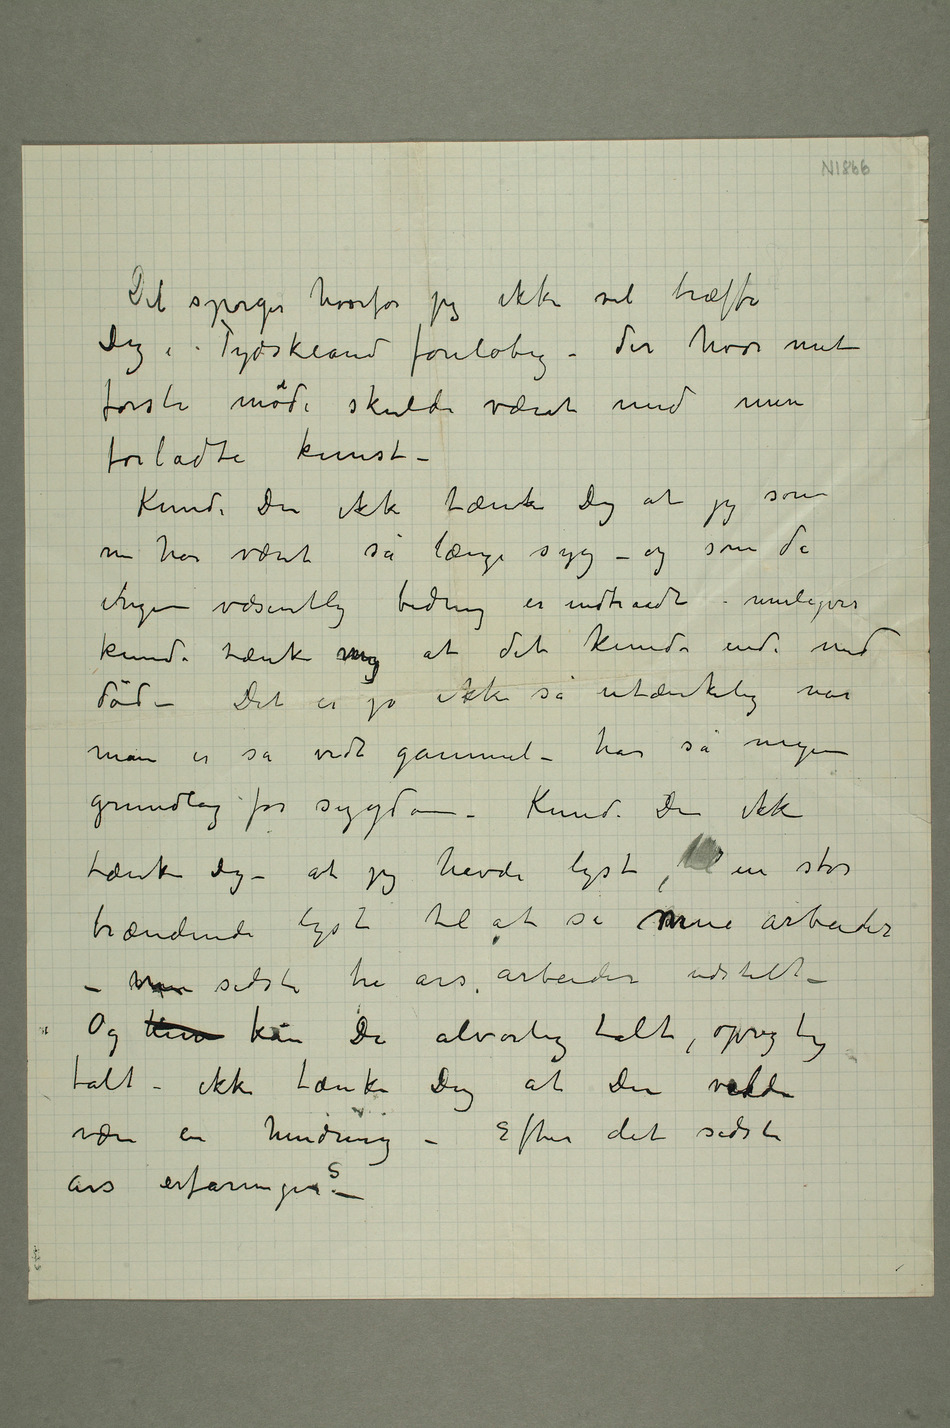 N1866
Det spørger hvorfor jeg ikke vil træffe
Dig i Tydskland foreløbig – der hvor mit
første møde skulde været med min
forladte kunst –
Kunde Du ikke tænke Dig at jeg som
nu har været så længe syg – og som da
ingen væsentlig bedring er indtraadt – muligvis
kunde tænke mig at det kunde ende med
død – Det er jo ikke så utænkelig når
man er så vidt gammel – har så megen
grundlag for sygdom – Kunde Du ikke
tænke Dig – at jeg havde lyst, en stor
brændende lyst til at se mine arbeider
– sidste tre års arbeider udstillt –
Og kan Du alvorlig talt, oprigtig
talt – ikke tænke Dig at Du vilde
være en hindring – Efter det sidste
års erfaringers –